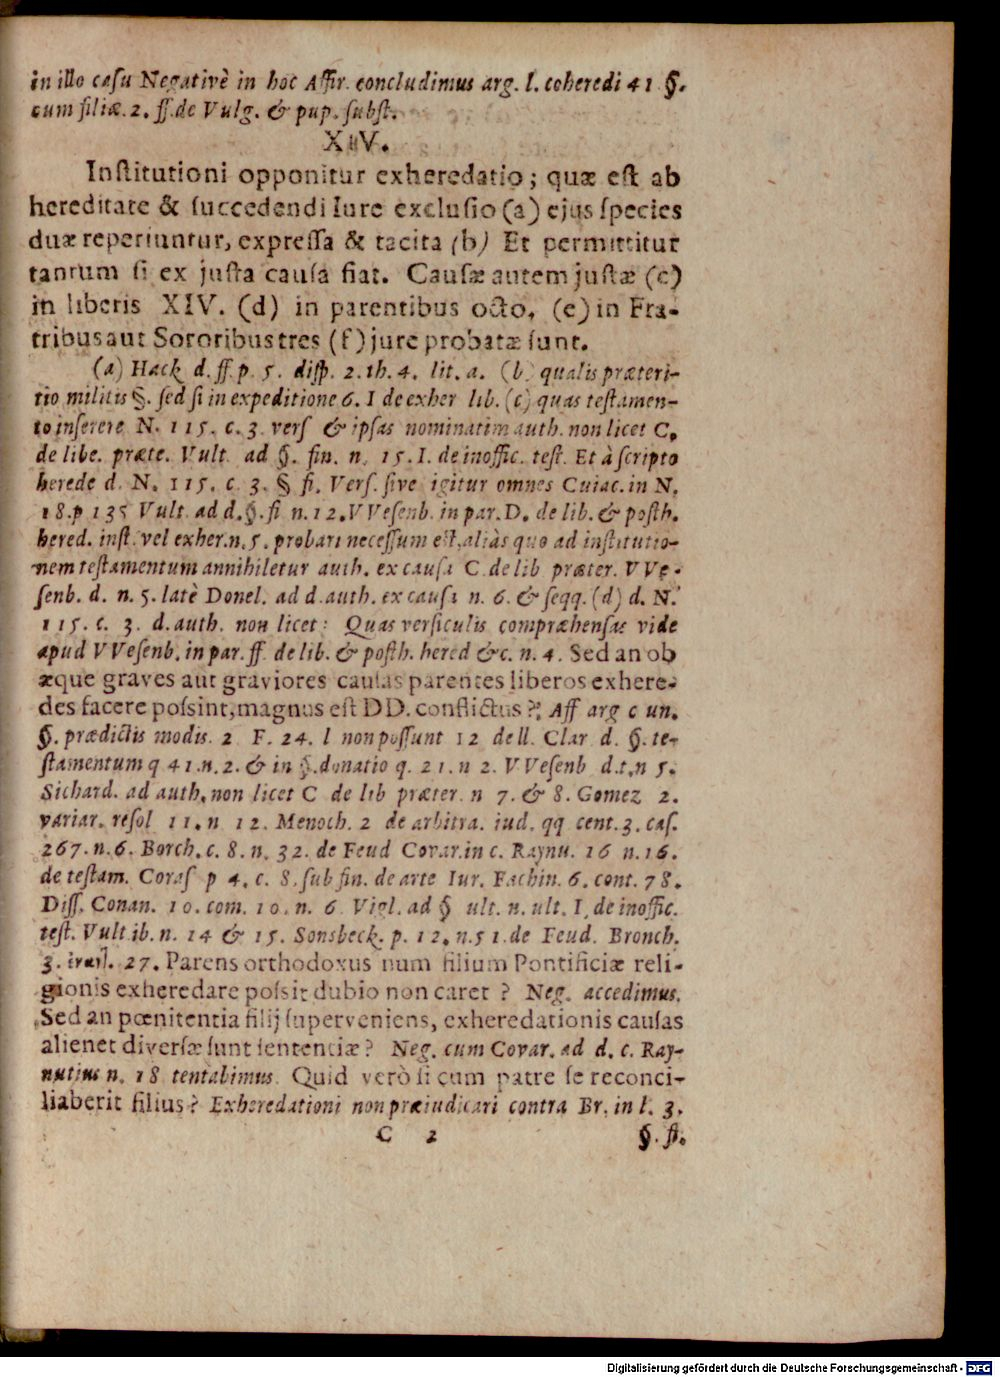 in illo casu Negativè in hoc Affir. concludimus arg. l. coheredi 41 §.
cum filiæ. 2. ff. de Vulg. & pup. subst.
XIV.
Institutioni opponitur exheredatio; quæ est ab
hereditate & succedendi Iure exclusio (a) ejus species
duæ reperiuntur, expressa & tacita (b) Et permittitur
tantum si ex justa causa fiat. Causæ autem justæ (c)
in liberis XIV. (d) in parentibus octo, (e) in Fra-
tribus aut Sororibus tres (f) jure probatæ sunt.
(a) Hack d. ff. p. 5. disp. 2. th. 4. lit. a. (b) qualis præteri-
tio militis §. sed si in expeditione 6. I de exher lib. (c) quas testamen-
to inserere N. 115. c. 3. vers & ipsas nominatim auth. non licet C.
de libe. præte. Vult ad §. fin. n. 15. I. de inoffic. test. Et à scripto
herede d. N. 115. c. 3. § fi. Vers. sive igitur omnes Cuiac. in N.
18. p 135 Vult ad d. §. fi n. 12. VVesenb. in par. D. de lib. & posth.
hered. inst. vel exher. n. 5. probari necessum est, aliàs quo ad institutio-
nem testamentum annihiletur auth. ex causa C. de lib præter. VVe-
senb. d. n. 5. latè Donel. ad d. auth. ex causa n. 6. & seqq. (d) d. N.
115. c. 3. d. auth. non licet: Quas versiculis compræhensas vide
apud VVesenb. in par. ff. de lib. & posth. hered &c. n. 4. Sed an ob
æque graves aut graviores causas parentes liberos exhere-
des facere possint, magnus est DD. conflictus? Aff arg c un.
§. prædictis modis. 2 F. 24. l non possunt 12 de ll. Clar d. §. te-
stamentum q 41. n. 2. & in §. donatio q. 21. n 2. VVesenb d. t. n 5.
Sichard. ad auth. non licet C de lib præter. n 7. & 8. Gomez 2.
variar. resol 11. n 12. Menoch. 2 de arbitra. iud. qq cent. 3. cas.
267. n. 6. Borch. c. 8. n. 32. de Feud Covar. in c. Raynu. 16 n. 16.
de testam. Coras p 4. c. 8. sub fin. de arte Iur. Fachin. 6. cont. 78.
Diss. Conan. 10. com. 10. n. 6 Vigl. ad § ult. n. ult. I, de inoffic.
test. Vult ib. n. 14 & 15. Sonsbeck. p. 12. n. 51. de Feud. Bronch.
3. 27. Parens orthodoxus num filium Pontificiæ reli-
gionis exheredare possit dubio non caret? Neg. accedimus.
Sed an pœnitentia filij superveniens, exheredationis causas
alienet diversæ sunt sententiæ? Neg. cum Covar. ad d. c. Ray-
nutius n. 18 tentabimus. Quid verò si cum patre se reconci-
liaberit filius? Exheredationi non præiudicari contra Br. in l. 3.
C 2 §. fi.
Digitalisierung gefördert durch die Deutsche Forschungsgemeinschaft - DFG